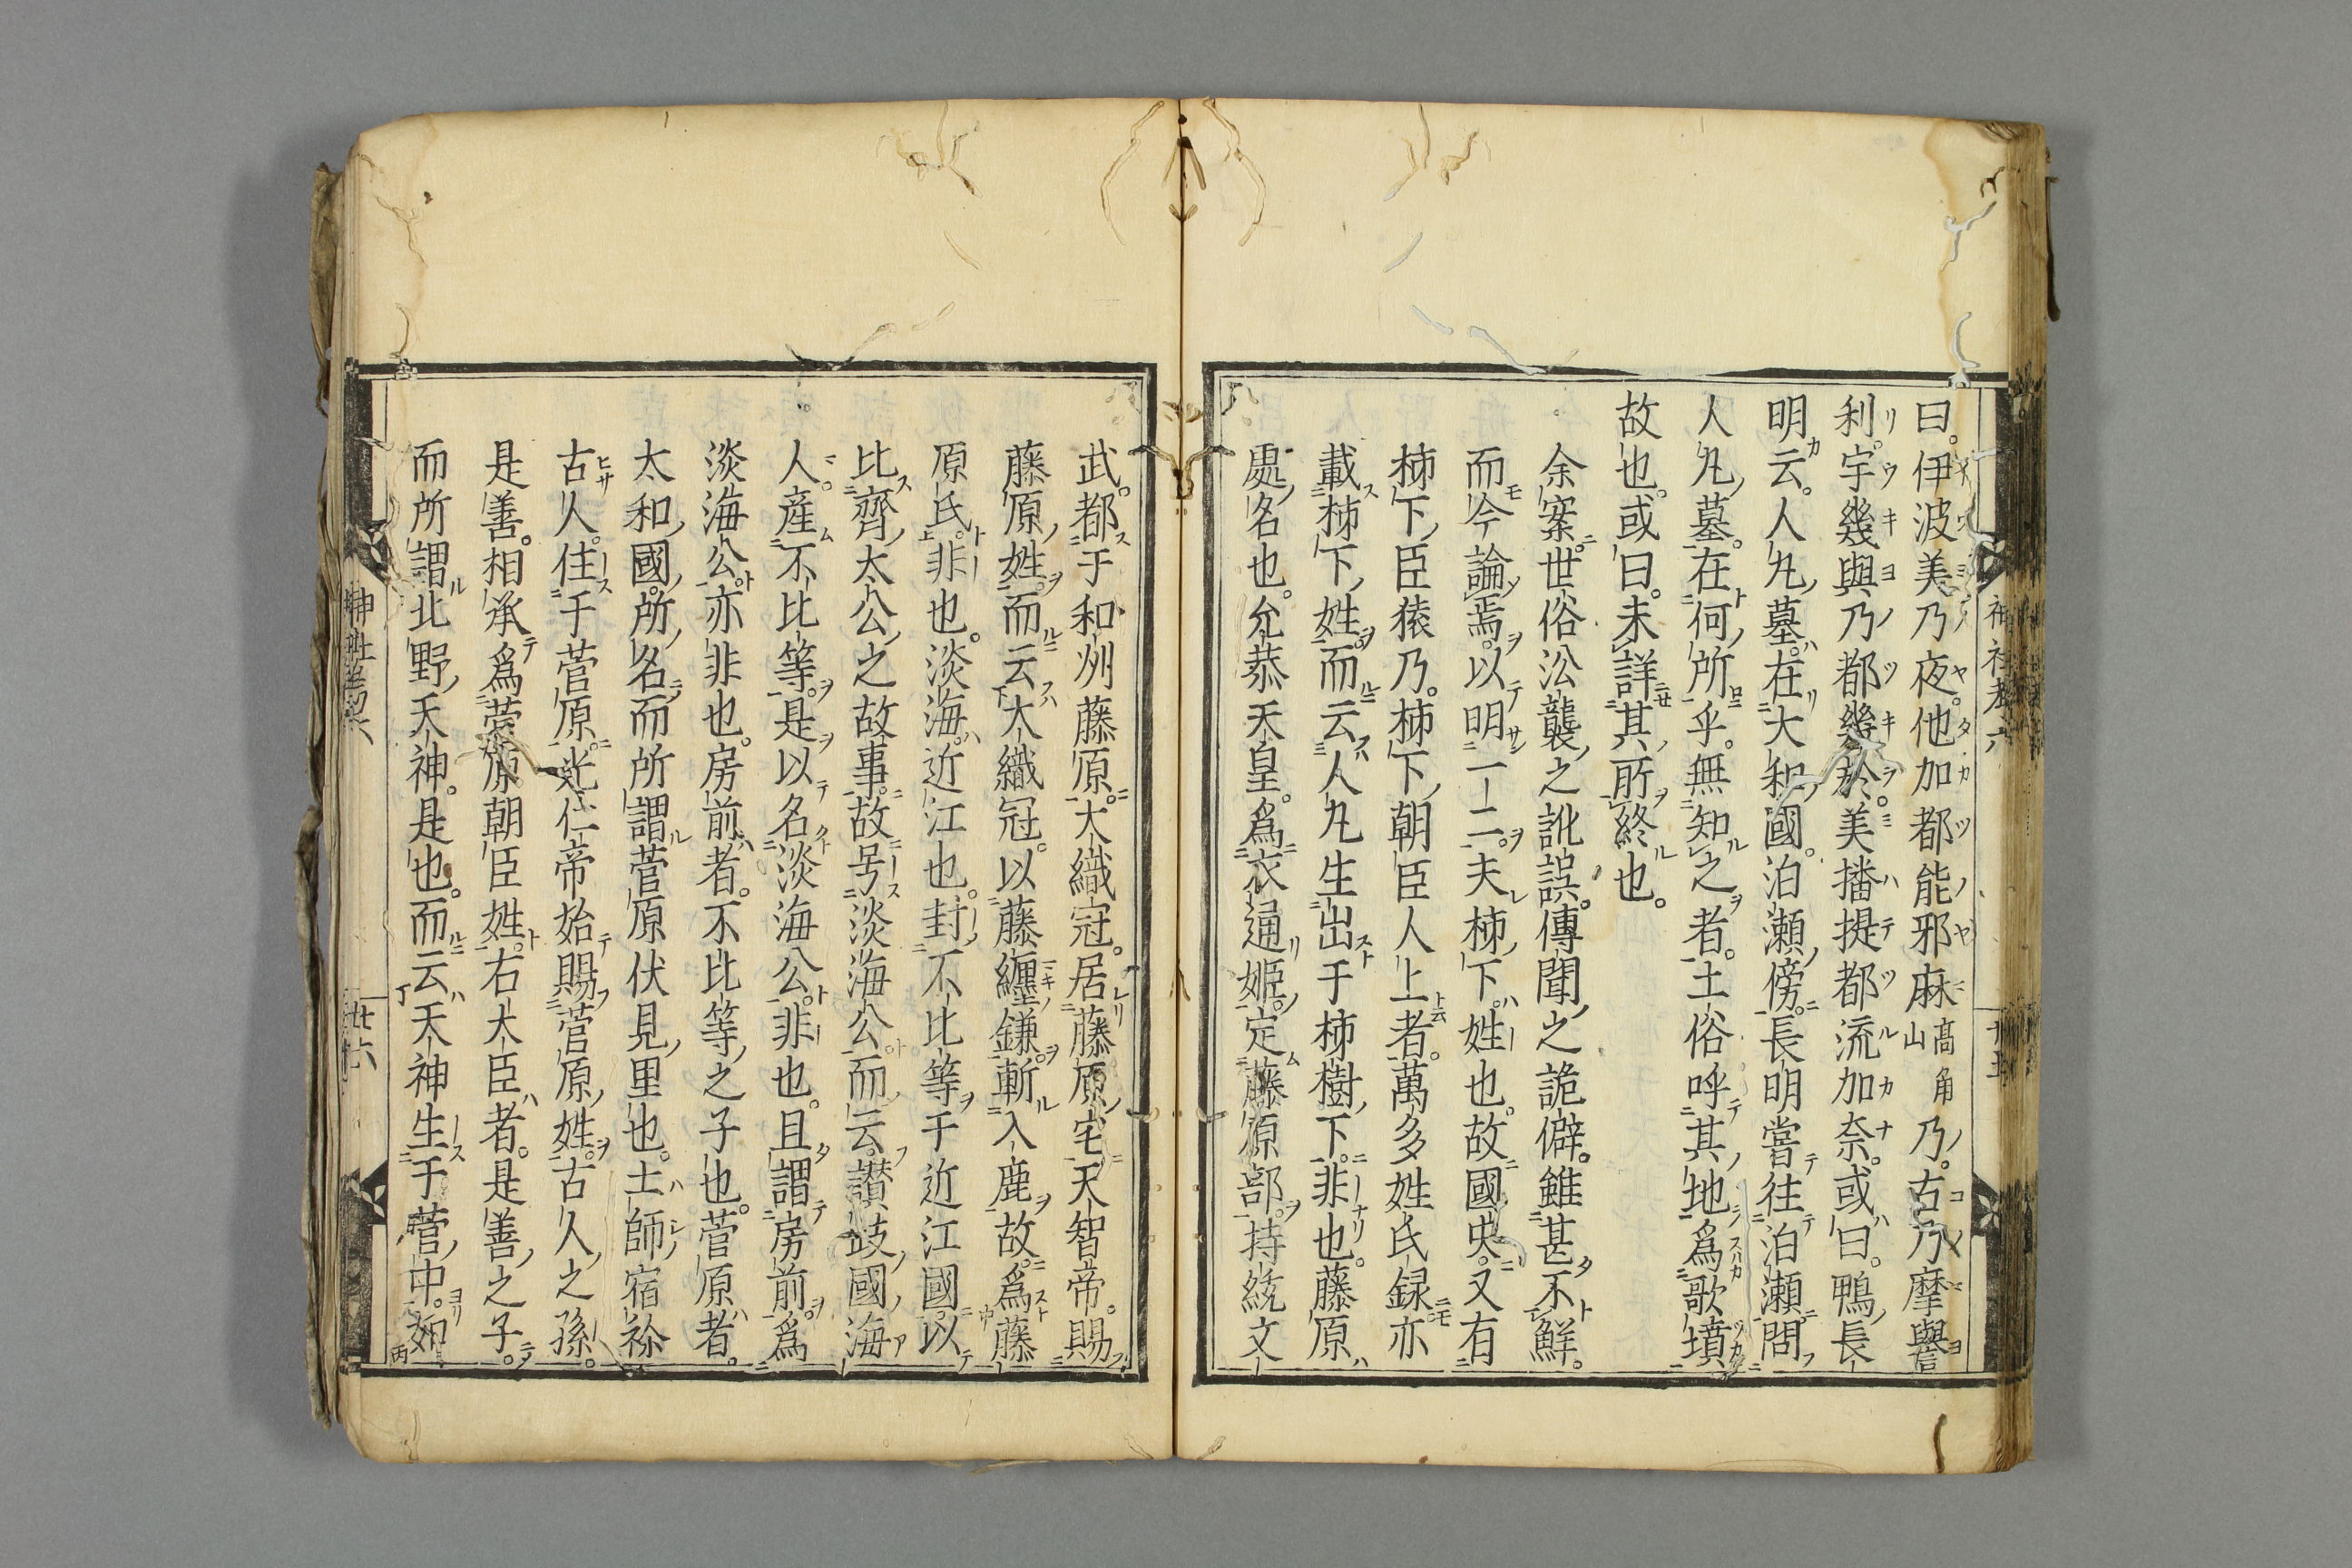 曰。伊波美乃夜。他加都能邪麻高角山乃。古乃摩譽
利。宇幾與乃都幾於。美播提都流加奈。或曰。鴨長
明云。人丸墓。在大和國。泊瀨傍。長明嘗往泊瀨問
人丸墓。在何所乎。無知之者。土俗呼其地爲歌墳
故也。或曰。未詳其所終也。
余案世俗㳂襲之訛誤。傳聞之詭僻。雖甚不鮮。
而今論焉。以明一二。夫柿下。姓也。故國史。又有
柿下臣猿乃。柿下朝臣人上者。萬多姓氏録亦
載柿下姓。而云人丸生出于柿樹下。非也。藤原
處名也。允恭天皇。爲衣通姫。定藤原部。持統文
武。都于和州藤原。大織冠。居藤原宅。天智帝。賜
藤原姓。而云大織冠。以藤纏鎌。斬入鹿。故。爲藤
原氏。非也。淡海。近江也。封不比等于近江國。以
比齊太公之故事。故号淡海公。而云。讃岐國海
人。産不比等。是以名淡海公。非也。且謂房前。爲
淡海公。亦非也。房前者。不比等之子也。菅原者。
太和國。所名。而所謂菅原伏見里也。土師宿祢
古人。住于菅原。光仁帝始賜菅原姓。古人之孫。
是善。相承爲菅原朝臣姓。右大臣者。是善之子。
而所謂北野天神。是也。而云天神生于菅中。如
神社考六
廿五
神社考六
廿六